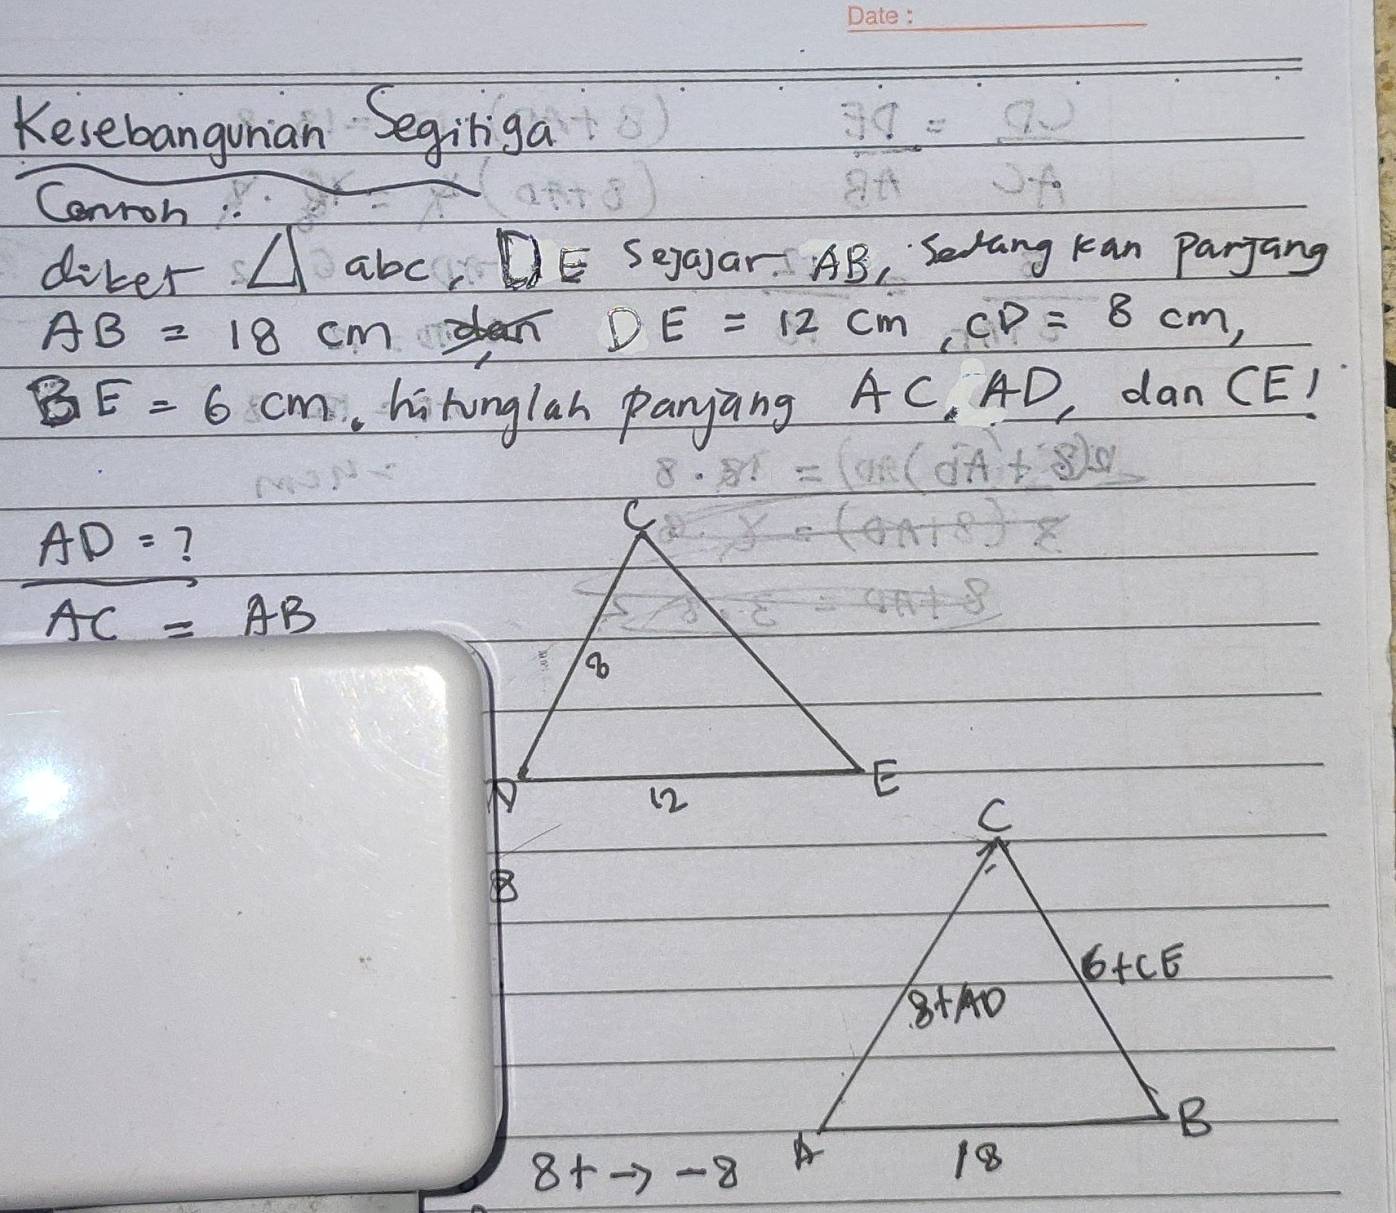 Date :
Kesebangunan Segitiga
Contoh :
diket △ abc, DE sejajar AB, sedang kan panjang
AB = 18 cm, DE = 12 cm, CD = 8 cm,
BE = 6 cm. hitunglah panjang AC, AD, dan CE!
AD = ?
AC = AB
C
8
D
12
E
B
C
6+CE
8+AD
A
18
B
8+ → -8